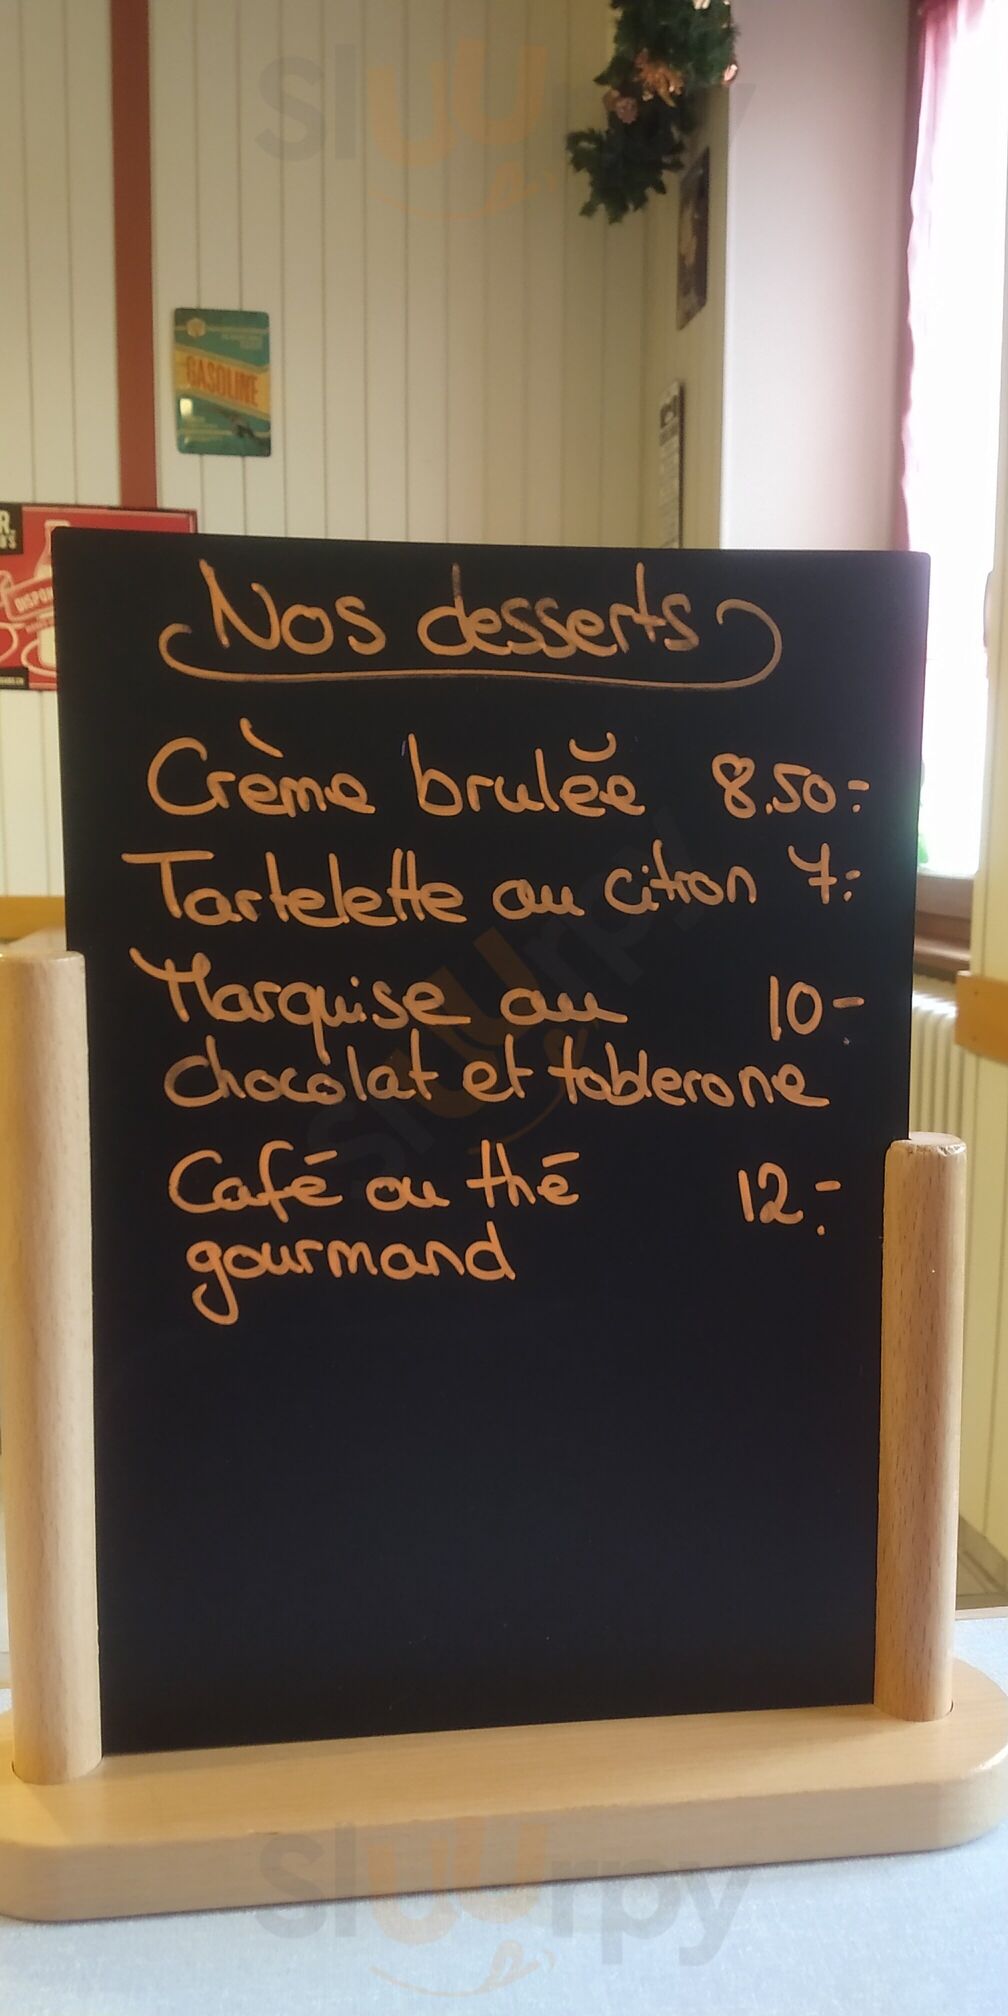 Sluurpy
GASOLINE
Nos desserts
Crème brulée 8.50:-
Tartelette au citron 7.-
Marquise au 10.-
chocolat et toblerone
Café ou thé 12.-
gourmand
Sluurpy
Sluurpy